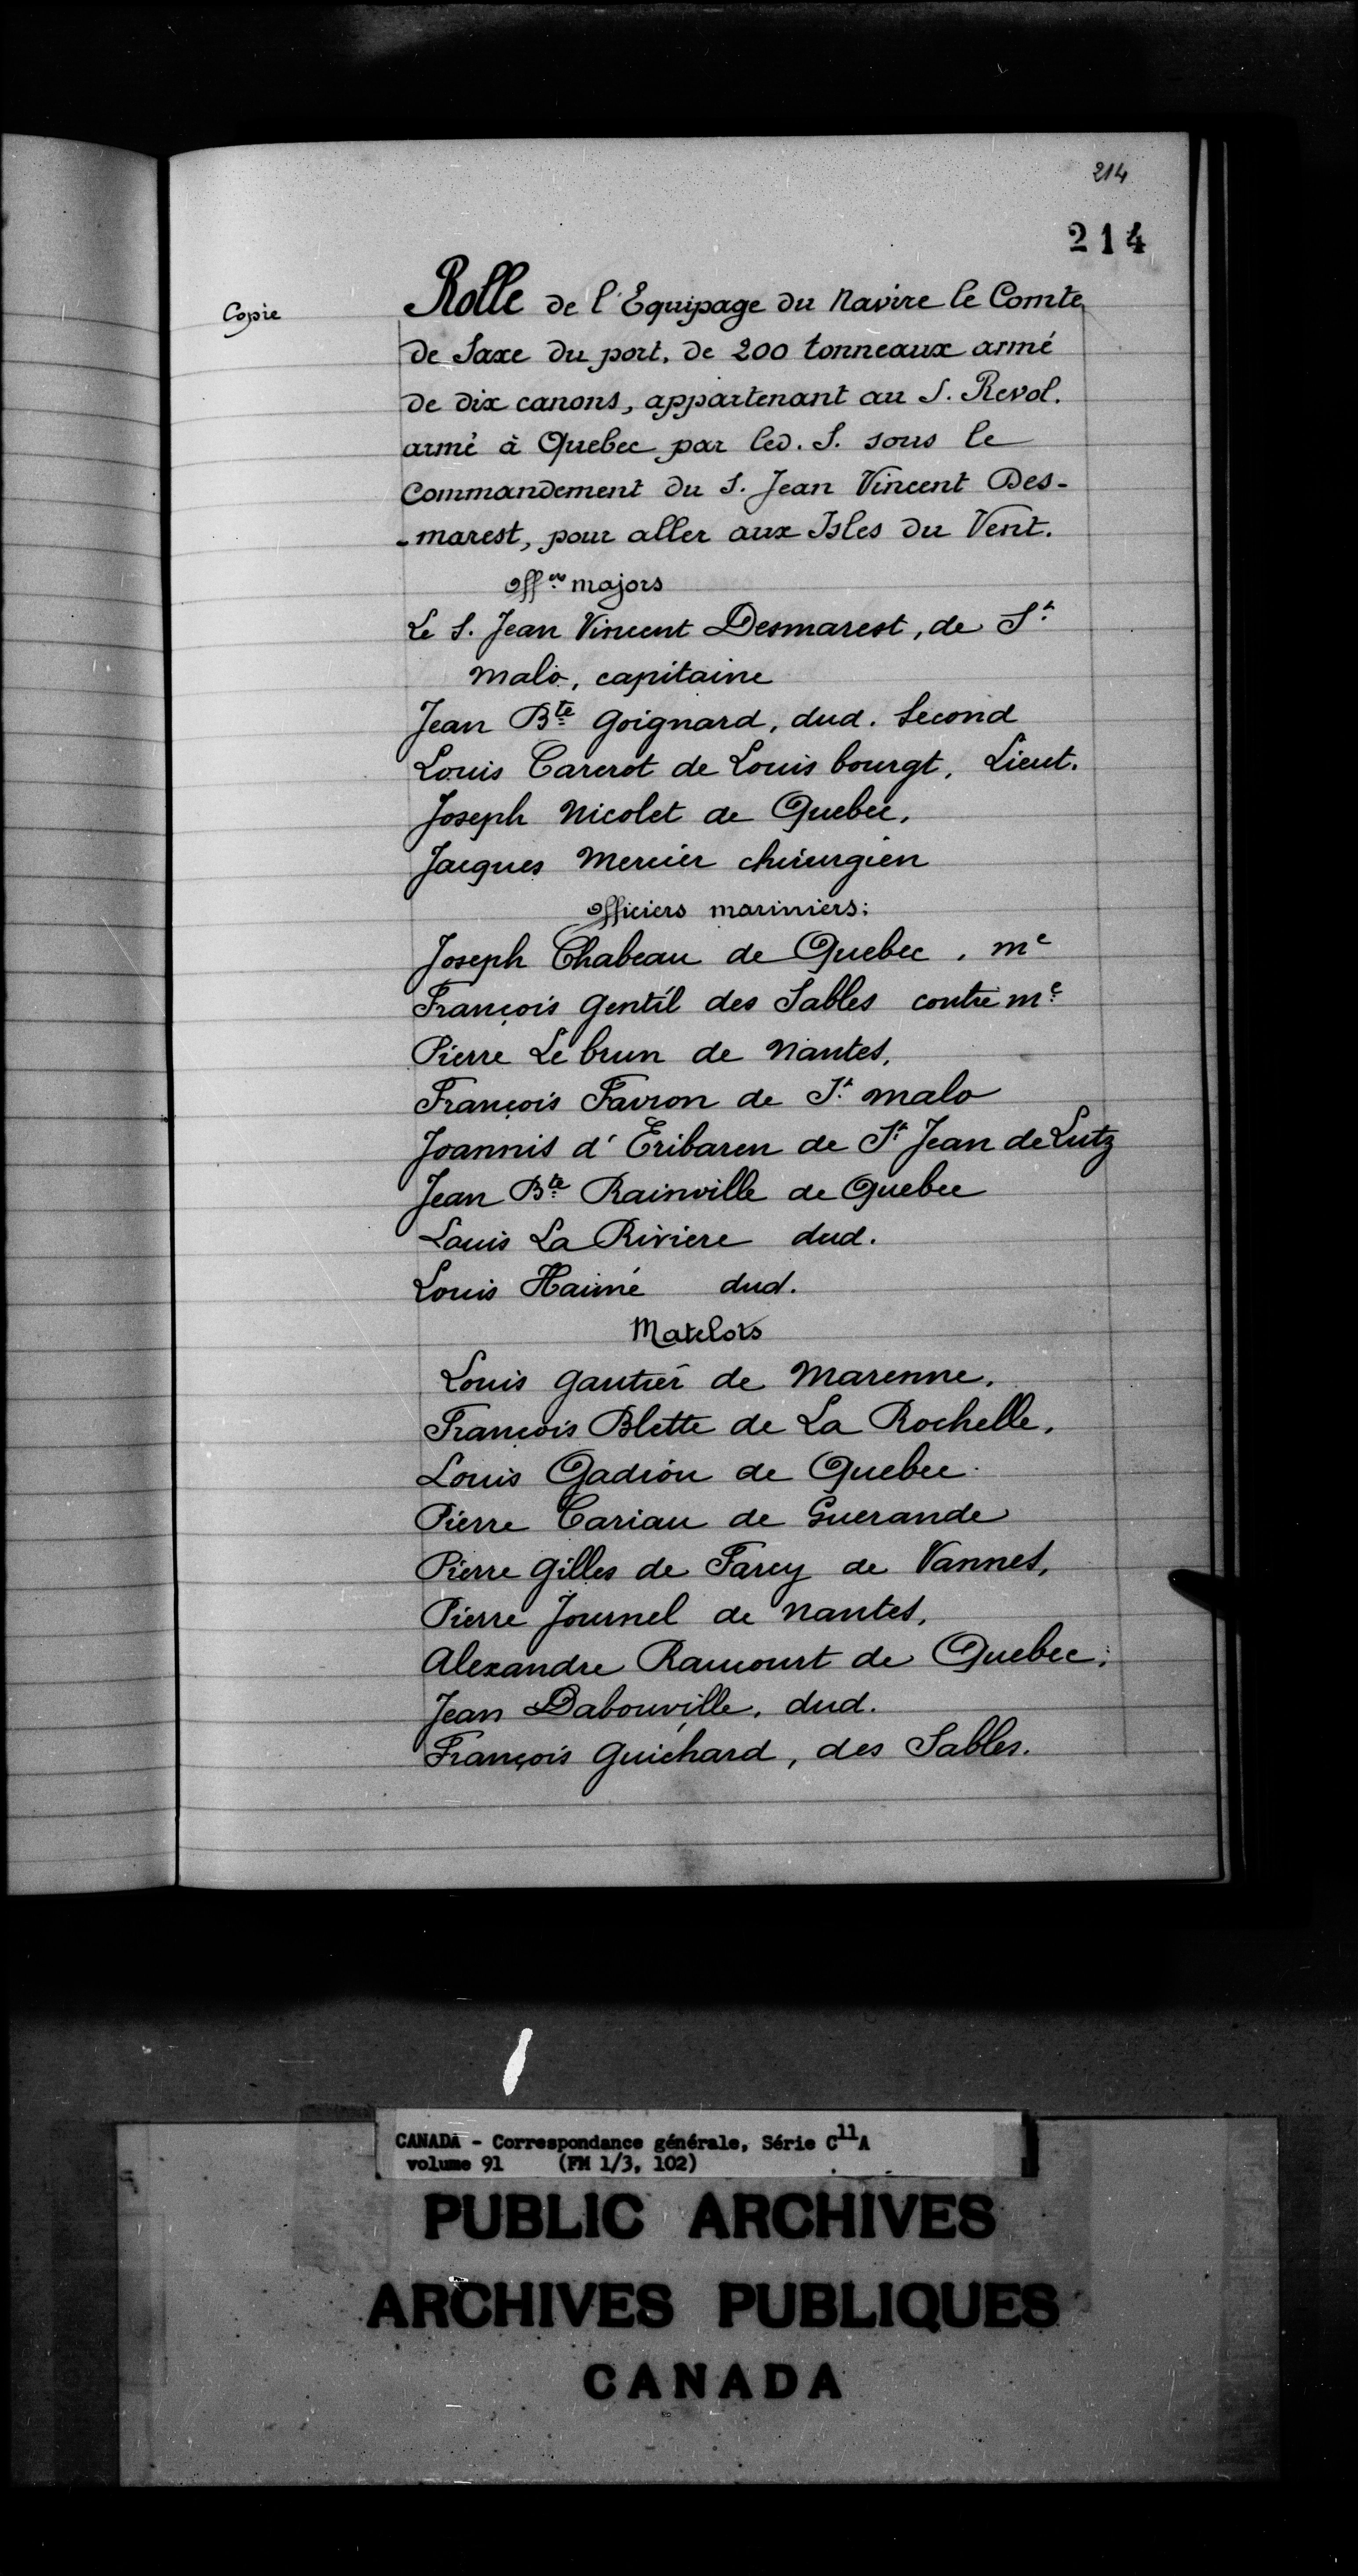 214
214
Copie
Rolle de l'Equipage du Navire le Comte
de Saxe du port, de 200 tonneaux armé
de dix canons, appartenant au S. Revol.
armé à Quebec par led. S. sous le
Commandement du S. Jean Vincent Des-
-marest, pour aller aux Isles du Vent.
Off.ers majors
Le S. Jean Vincent Desmarest, de St.
Malo, capitaine
Jean Bte. Goignard, dud. Second
Louis Carerot de Louis bourgt, Lieut.
Joseph Nicolet de Quebec,
Jacques Mercier chirurgien
Officiers mariniers:
Joseph Chabeau de Quebec, me
François Gentil des Sables contre me.
Pierre Le brun de Nantes,
François Favron de St. Malo
Joannis d'Eribaren de St. Jean de Lutz
Jean Bte. Rainville de Quebec
Louis La Riviere dud.
Louis Haimé dud.
Matelots
Louis Gautier de Marenne,
François Blette de La Rochelle,
Louis Gadiou de Quebec.
Pierre Cariau de Guerande
Pierre Gilles de Farcy de Vannes,
Pierre Journel de Nantes,
Alexandre Raucourt de Quebec,
Jean Dabouville, dud.
François Guichard, des Sables.
CANADA - Correspondance générale, Série C11A
volume 91 (FM 1/3, 102)
PUBLIC ARCHIVES
ARCHIVES PUBLIQUES
CANADA